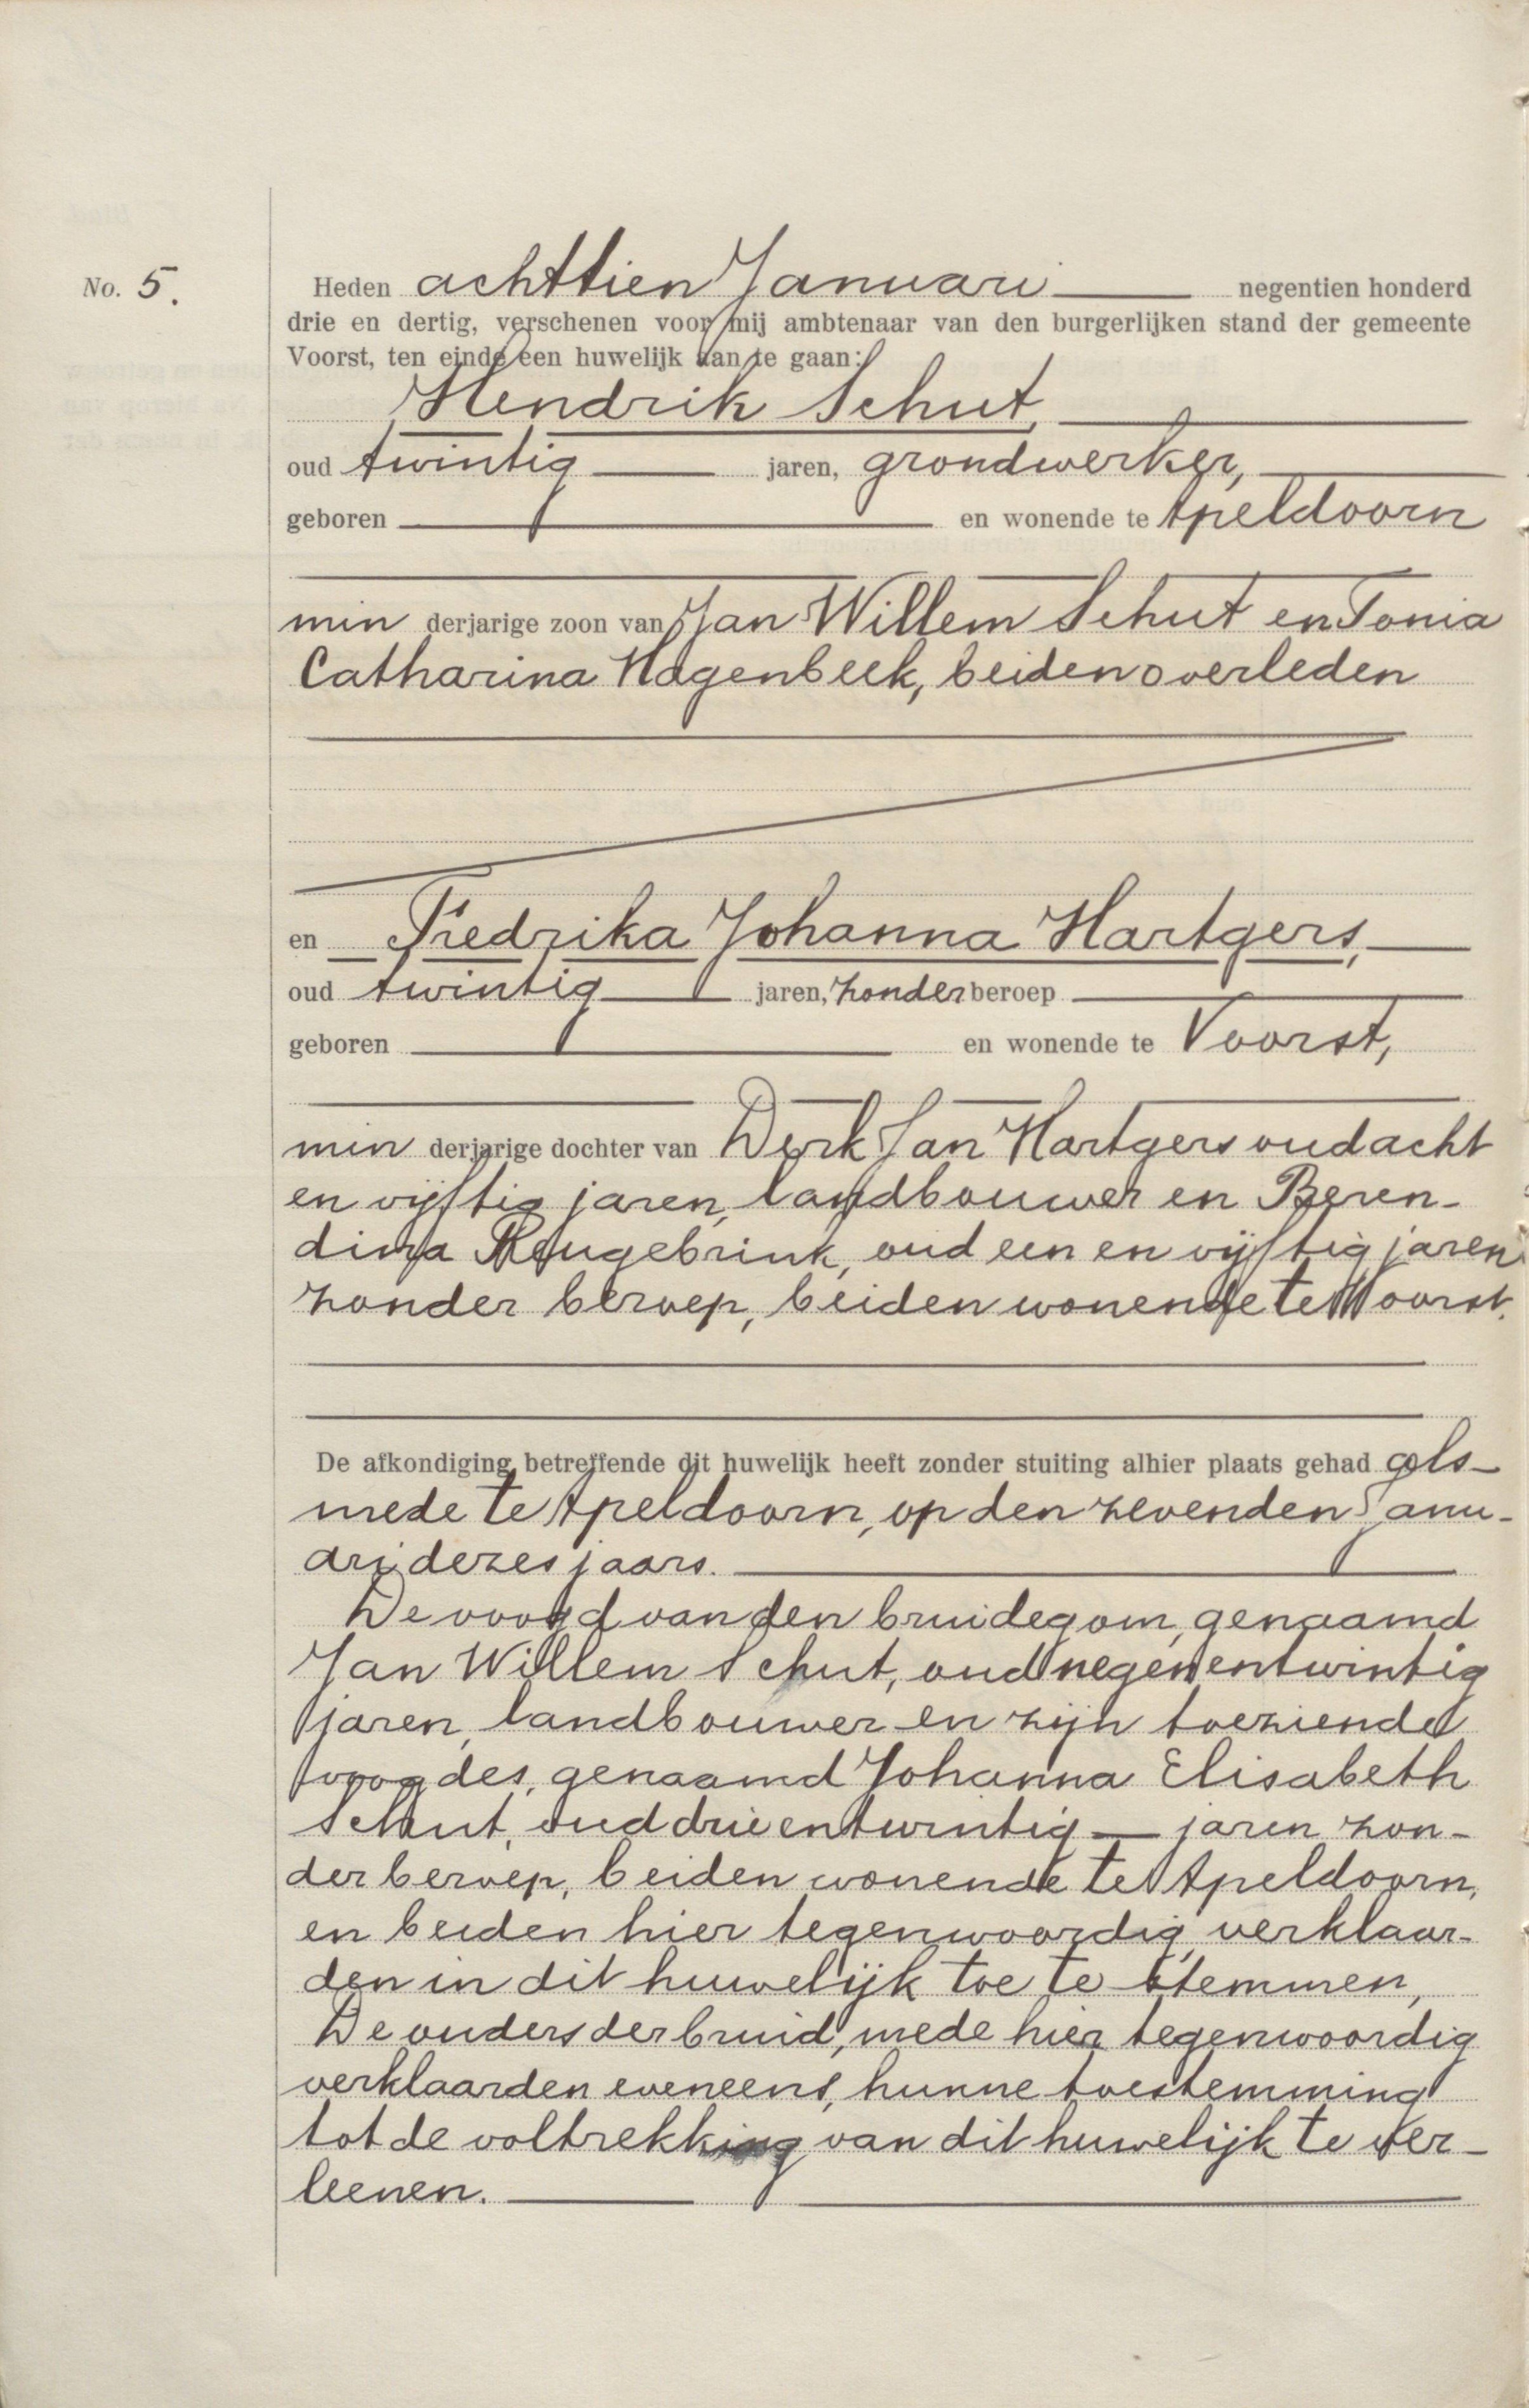 No. 5.
Heden achttien Januari negentien honderd
drie en dertig, verschenen voor mij ambtenaar van den burgerlijken stand der gemeente
Voorst, ten einde een huwelijk aan te gaan:
Hendrik Schut,
oud twintig jaren, grondwerker,
geboren en wonende te Apeldoorn
min derjarige zoon van Jan Willem Schut en Tonia
Catharina Hagenbeek, beiden overleden
en Fredrika Johanna Hartgers,
oud twintig jaren, zonder beroep
geboren en wonende te Voorst,
min derjarige dochter van Derk Jan Hartgers oud acht
en vijftig jaren, landbouwer en Beren-
dina Reugebrink, oud een en vijftig jaren
zonder beroep, beiden wonende te Voorst.
De afkondiging betreffende dit huwelijk heeft zonder stuiting alhier plaats gehad als-
mede te Apeldoorn, op den zevenden Janu-
ari dezes jaars.
De voogd van den bruidegom, genaamd
Jan Willem Schut, oud negen en twintig
jaren, landbouwer en zijn toeziende
voogdes, genaamd Johanna Elisabeth
Schut, oud drie en twintig jaren zon-
der beroep, beiden wonende te Apeldoorn,
en beiden hier tegenwoordig, verklaar-
den in dit huwelijk toe te stemmen,
De ouders der bruid, mede hier tegenwoordig
verklaarden eveneens, hunne toestemming
tot de voltrekking van dit huwelijk te ver-
leenen.